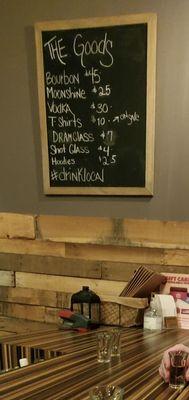 THE Goods
Bourbon $45
Moonshine $25
Vodka $30
T-Shirts $10
DRAM Glass $7
Shot Glass $4
Hoodies $25
#drinklocal